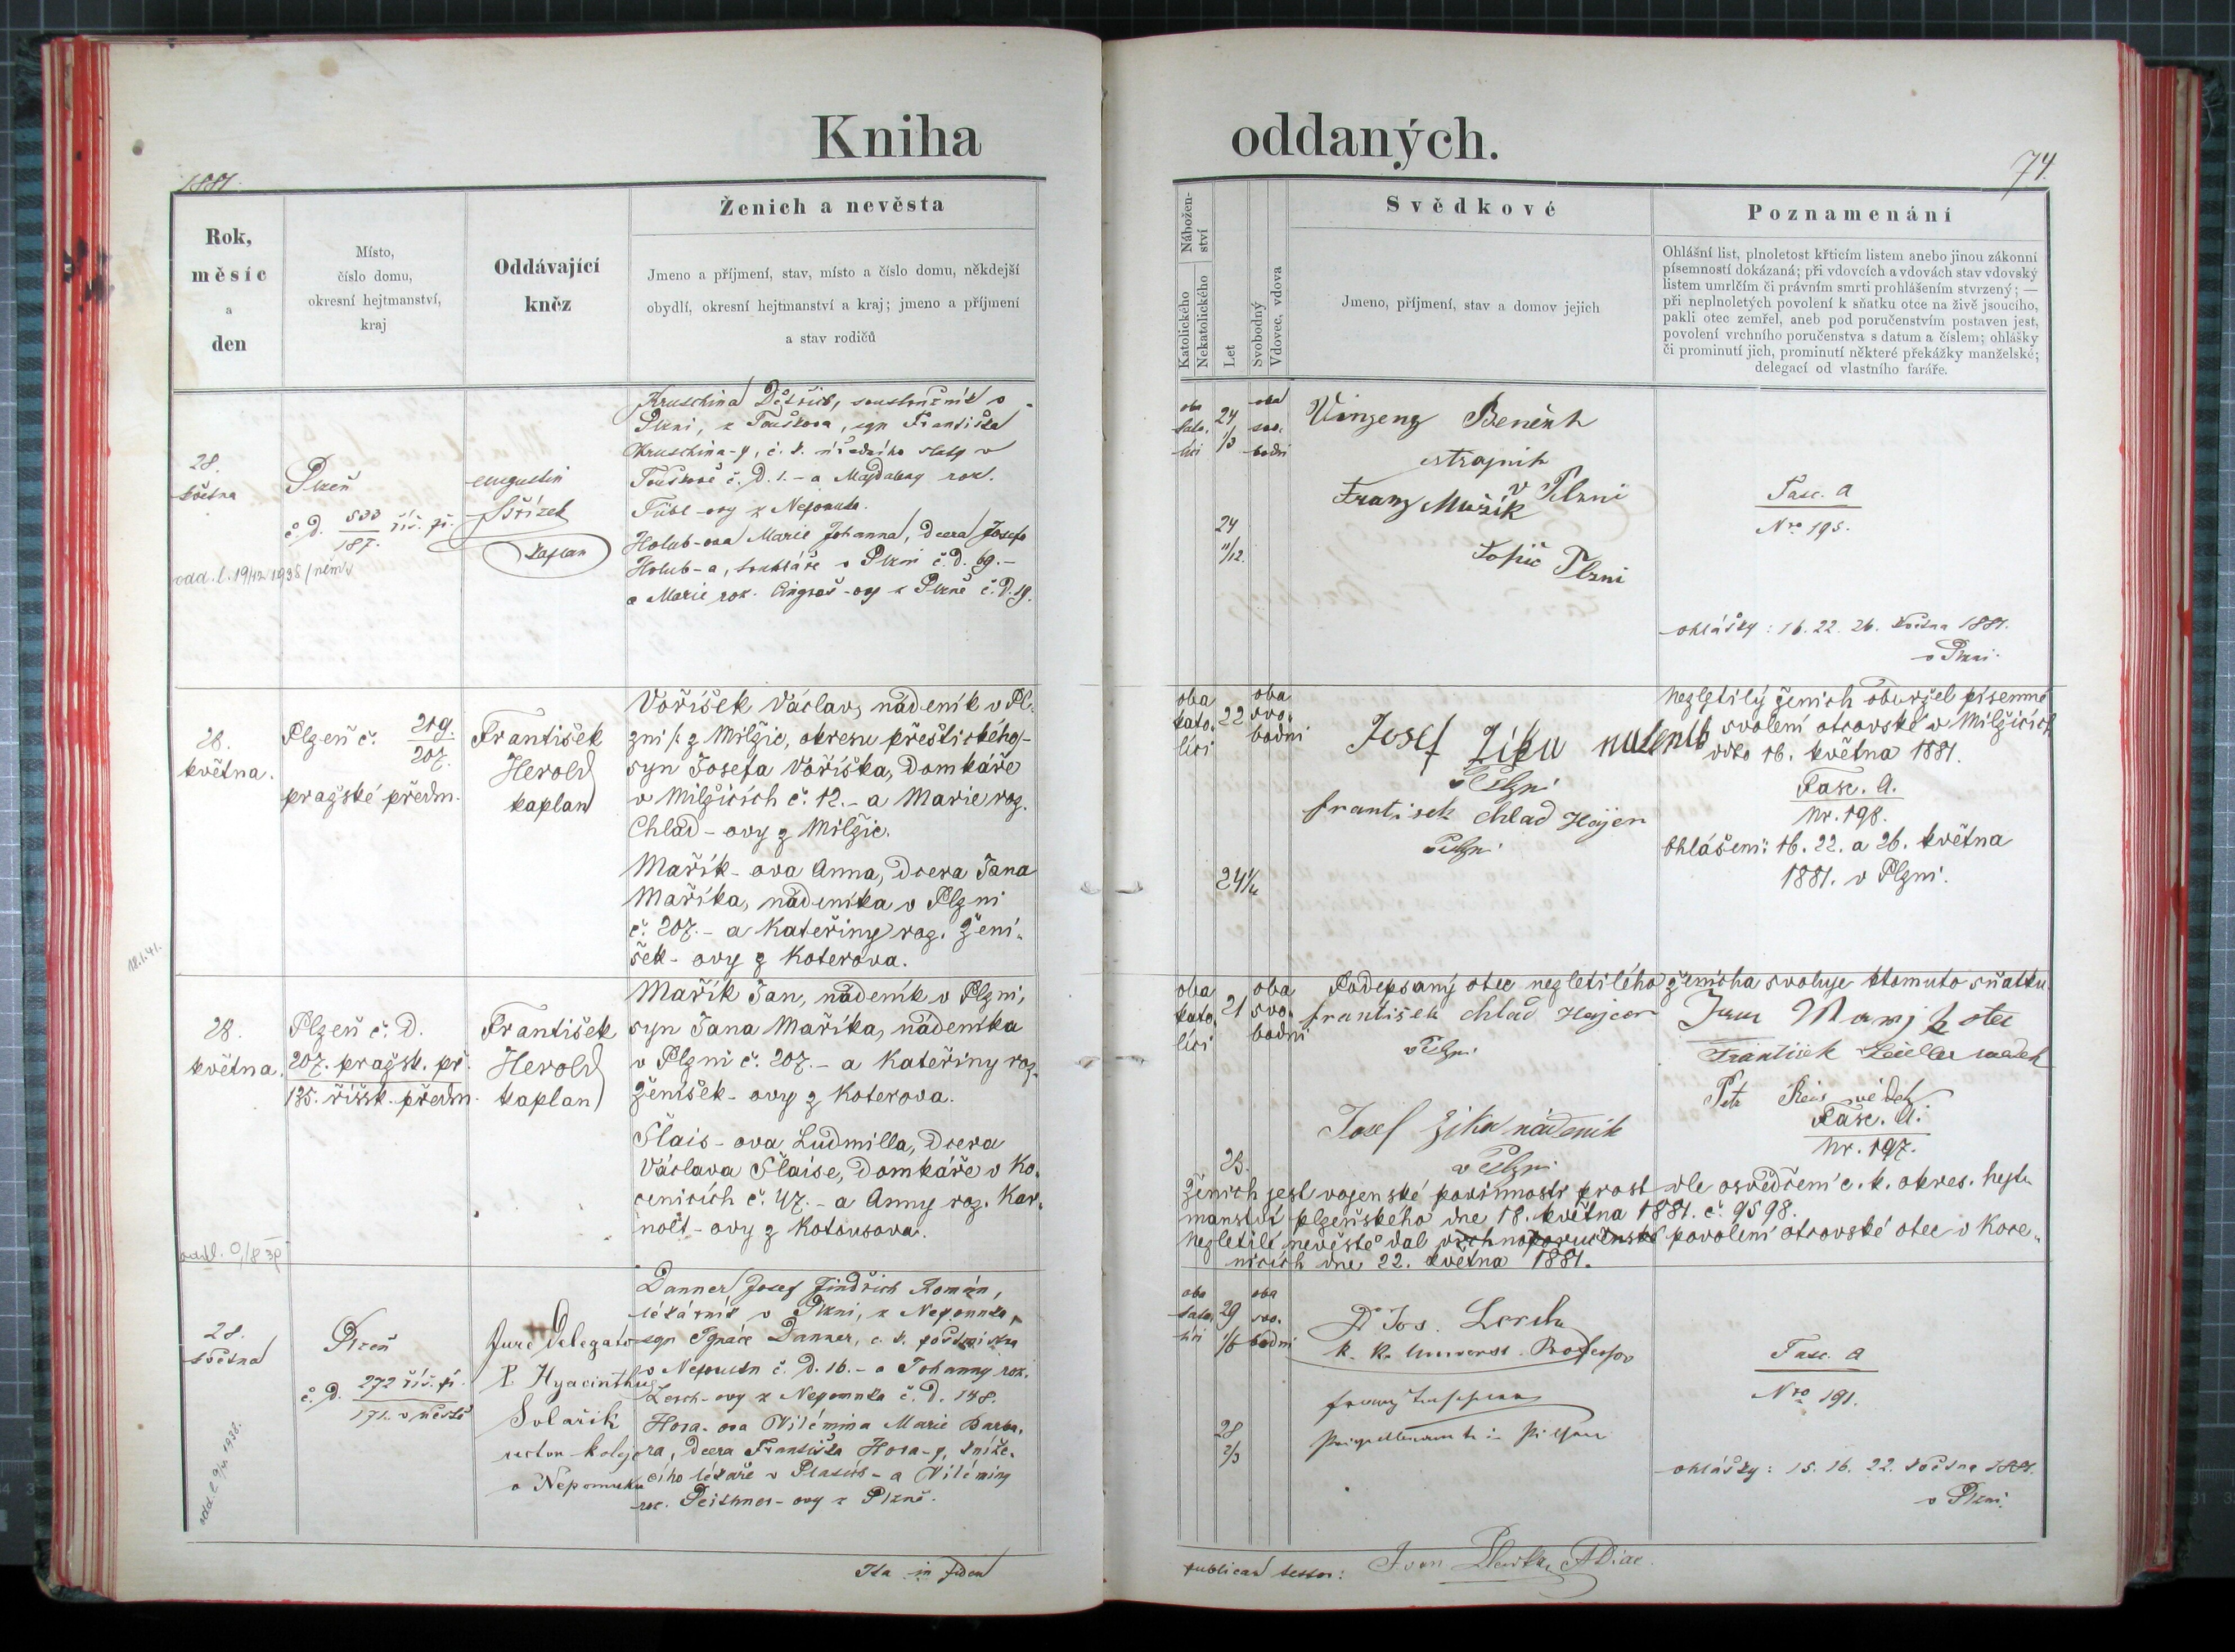 Kniha oddaných.
1881.
74.
Rok,
měsíc
a
den
Místo,
číslo domu,
okresní hejtmanství,
kraj
Oddávající
kněz
Ženich a nevěsta
Jmeno a příjmení, stav, místo a číslo domu, někdejší
obydlí, okresní hejtmanství a kraj; jmeno a příjmení
a stav rodičů
Nábožen-
ství
Katolického
Nekatolického
Let
Svobodný
Vdovec, vdova
Svědkové
Jmeno, příjmení, stav a domov jejich
Poznamenání
Ohlášní list, plnoletost křticím listem anebo jinou zákonní
písemností dokázaná; při vdovcích a vdovách stav vdovský
listem umrlčím či právním smrti prohlášením stvrzený; —
při neplnoletých povolení k sňatku otce na živě jsoucího,
pakli otec zemřel, aneb pod poručenstvím postaven jest,
povolení vrchního poručenstva s datum a číslem; ohlášky
či prominutí jich, prominutí některé překážky manželské;
delegací od vlastního faráře.
28.
května
Plzeň
č. D. 533 říš. př.
187.
Augustin
Střízek
kaplan
Kruschina Dětřich, soustružník v
Plzni, z Touškova, syn Františka
Kruschina-y, c. k. úředního sluhy v
Touškově č. D. 1. - a Majdaleny roz.
z Nepomuka.
Holub-ova Marie Johanna, dcera Josefa
Holub-a, truhláře v Plzni č. D. 69. -
a Marie roz. z Plzně č. D. 19.
oba
kato.
líci
24
1/3
oba
svo.
bodni
24
11/12.
Vinzenz Benesch
strojnik
v Plzni
Franz Mužík
Topič Plzni
Fasc. A
Nro 195.
ohlášky: 16. 22. 26. května 1881.
v Plzni.
28.
května.
Plzeň č. 219.
207.
pražské předm.
František
Herold
kaplan
Voříšek Václav, nádeník v Pl-
zni /: z Milžic, okresu přeštického/-
syn Josefa Voříška, domkáře
v Milžicích č. 12. - a Marie roz.
Chlad-ovy z Milžic.
Mařík-ova Anna, dcera Jana
Maříka, nádeníka v Plzni
č. 207. - a Kateřiny roz. Žení-
šek-ovy z Koterova.
oba
kato.
líci
22
oba
svo.
bodni
24 1/2
Josef Zíka nadenik
v Plzni
frantisek chlad Hajen
v Plzni
Nezletilý ženich obdržel písemné
svolení otcovské v Milžicích
dto 16. května 1881.
Fasc. A.
Nr. 198.
Ohlášení: 16. 22. a 26. května
1881. v Plzni.
12.I.41.
28.
května.
Plzeň č. D.
207. pražsk. př.
135. říšsk. předm.
František
Herold
kaplan
Mařík Jan, nádeník v Plzni,
syn Jana Maříka, nádeníka
v Plzni č. 207. - a Kateřiny roz.
Ženíšek-ovy z Koterova.
Šlais-ova Ludmilla, dcera
Václava Šlaise, domkáře v Ko-
cenicích č. 47. - a Anny roz. Kar-
nolt-ovy z Kotousova.
oba
kato.
líci
21
oba
svo.
bodni
23.
Podepsaný otec nezletilého ženicha svoluje k tomuto sňatku.
františek chlad Hajcer
v Plzni
Josef Zíka nádeník
v Plzni
Jan Marik otec
František svědek
Petr Reis svědek
Fasc. A.
Nr. 197.
Ženich jest vojenské povinnosti prost dle osvědčení c. k. okres. hejt-
manství plzeňského dne 18. května 1881. č. 9598.
Nezletilé nevěstě dal vrchnoporučenské povolení otcovské otec v Koce-
nicích dne 22. května 1881.
28.
května
Plzeň
č. D. 272 říš. př.
171. v městě
Jure delegato
P. Hyacinthus
Solařík
rector kolleje
v Nepomuku
Danner Josef Jindřich Román,
lékárník v Plzni, z Nepomuka,
syn Ignáce Danner, c. k. poštmistra
v Nepomuku č. D. 16. - a Johanny roz.
Lerch-ovy z Nepomuka č. D. 148.
Hora-ova Vilémina Marie Barbo-
ra, dcera Františka Hora-y, kníže-
cího lékaře v Plasích - a Vilémíny
roz. Peithner-ovy z Plzně.
oba
kato.
líci
29
1/6
oba
svo.
bodni
28
2/3
Dr. Jos. Lerch
k. k. Universt. Professor
Franz
in Pilsen
Fasc. A
Nro 191.
ohlášky: 15. 16. 22. května 1881.
v Plzni.
Ita in fidem
publicae testor: